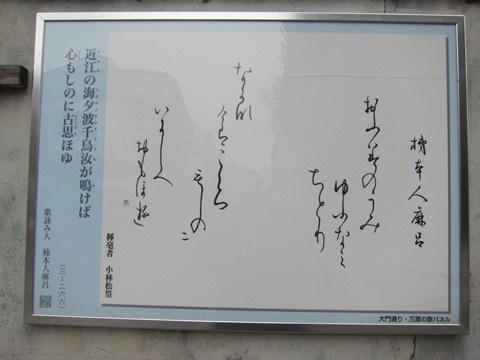 柿本人麻呂
ゆふなミ
ちとり
もしの二
いにしへ
おもほ遊
揮毫者 小林松篁
近江の海夕波千鳥汝が鳴けば
心もしのに古思ほゆ
歌詠み人 柿本人麻呂
(三ー二六六)
大門通り・万葉の歌パネル